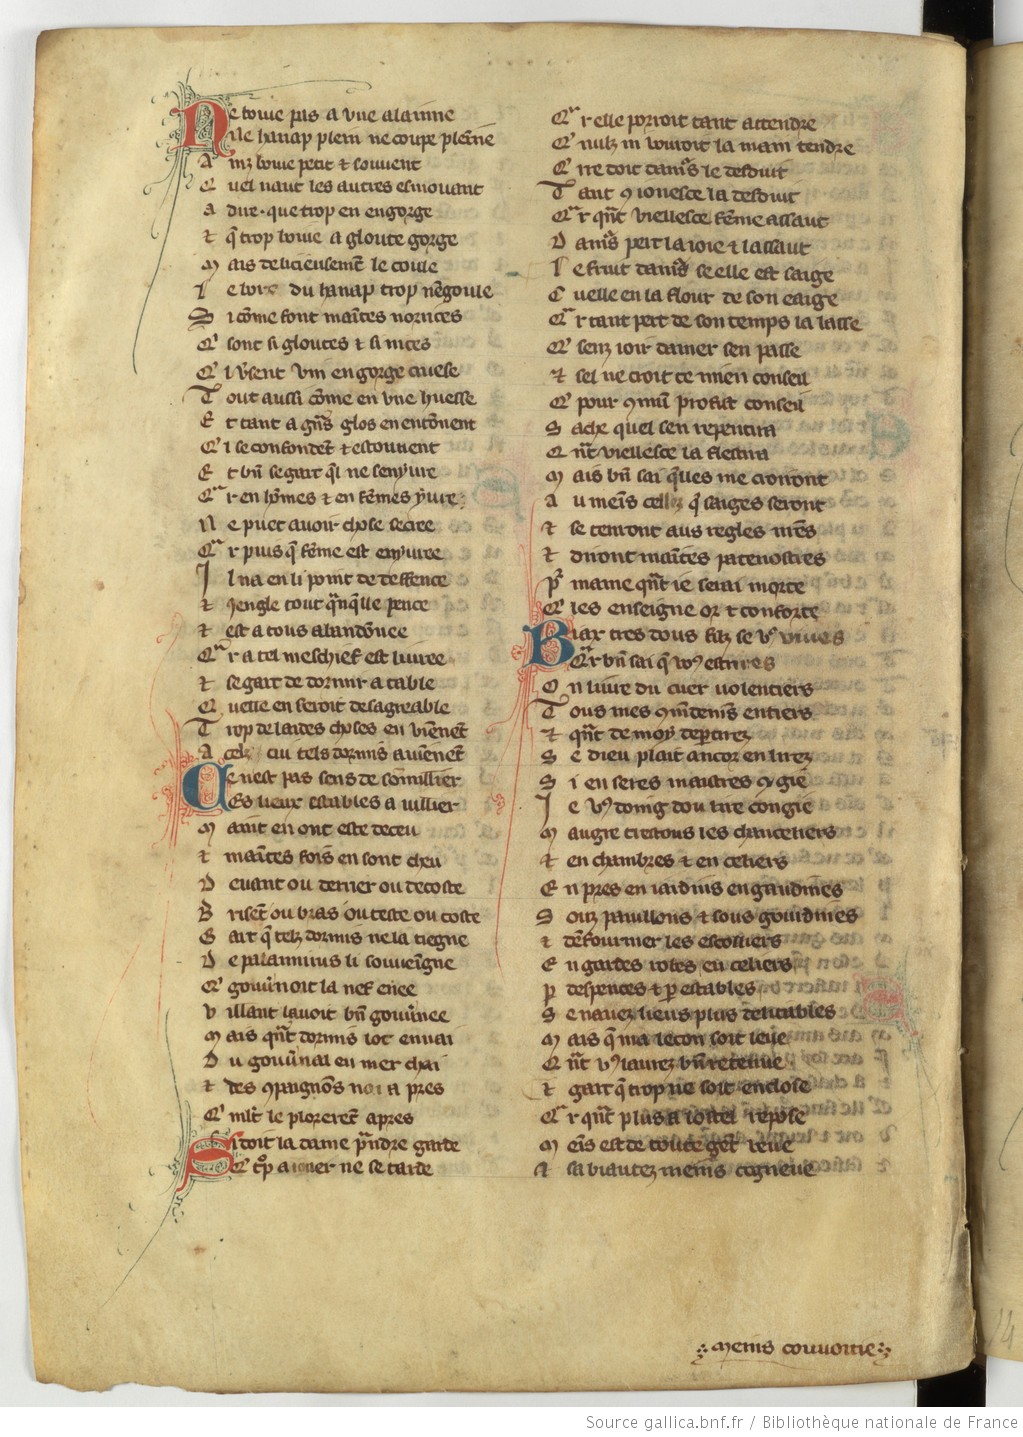 Ne boiue pas a vne alainne
Ne hanap plein ne coupe pleinne
Ainz boiue petit & souuent
Quel naut les autres esmouuant
A dire que trop en engorge
& q̃ trop boiue a gloute gorge
Mais delicieusemẽt le coule
Le bort du hanap trop nẽgoule
Si cõme font maĩtes norrices
Qͥ sont si gloutes & si nices
Qͥ lv̾sent vin en gorge creuse
Tout aussi cõme en vne huesse
Et tant a gñs glos en entõnent
Qͥ se confondẽt & estounent
Et bñ se gart q̃l ne senyure
Qͣr en hõmes & en fẽmes yure
Ne puet auoir chose secree
Qͣr puis q̃ fẽme est enyuree
Il na en li point de deffence
& iengle tout qͣnq̃lle pence
& est a tous abandõnee
Qͣr a tel meschief est liuree
& se gart de dormir a table
Quelle en seroit desagreable
Trop de laides choses en viẽnẽt
A celz cui tels dormirs auiẽnẽt
Ce nest pas sens de sõmillier
Es lieux establies a uillier
Maint en ont este deceu
& maĩtes fois en sont cheu
Deuant ou derrier ou decoste
Brisẽt ou bras ou teste ou coste
Gart q̃ telz dormirs ne la tiegne
De palamirus li souueĩgne
Qͥ gouũnoit la nef enee
Villant lauoit bñ gouũnee
Mais qñt dormirs lot enuai
Du gouũnal en mer chai
& des ꝯpaignõs noia pres
Qͥ mlt̃ le plorerẽt apres
Si doit la dame pͣndre garde
Qͥ tͬp a iouer ne se tarde
Qͣr elle porroit tant attendre
Qͥ nulz ni vorroit la main tendre
Querre doit dam̃s le desduit
Tant ꝯ ionesce la desduit
Qͣr qñt viellesce fẽme assaut
Dam̃s pert la ioie & lassaut
Le fruit dam̃s se elle est saige
Cuelle en la flour de son eaige
Qͣr tant pert de son temps la lasse
Qͥ senz ioir damer sen passe
& sel ne croit ce mien conseil
Qͥ pour ꝯmũ profist conseil
Sache quel sen repentira
Qñt viellesce la flestira
Mais bñ sai q̃les me crorront
Au meĩs celles q̃ saiges seront
& se tenront aus regles nr̃es
& diront maĩtes patenostres
Pͬ mame qñt ie serai morte
Qͥ les enseigne or & conforte
Biax tres dous filz se vͦ viues
Qͣr bñ sai q̃ vͦ estriues
On liure du cuer uolentiers
Tous mes ꝯmãdemẽs entiers
& qñt de moy depͣtirez
Se dieu plait ancor en lirez
Si en seres maistres ꝯ gie
Ie vͦ doing dou lire congie
Maugre trestous les chanceliers
& en chambres & en celiers
En pres en iardins en gaudines
Souz pauillons & sous gourdines
& dẽfourmer les escoliers
En gardes robes en celiers
Pͬ despences & pͬ estables
Se nauez lieus plus delitables
Mais q̃ ma lecon soit leue
Qñt vͦ laurez bñ retenue
& gart q̃ trop ne soit enclose
Qͣr qñt plus a lostel repose
Meĩs est de toute gẽt veue
& sa biautez meins cogneue
meins couuoitie
Source gallica.bnf.fr / Bibliothèque nationale de France